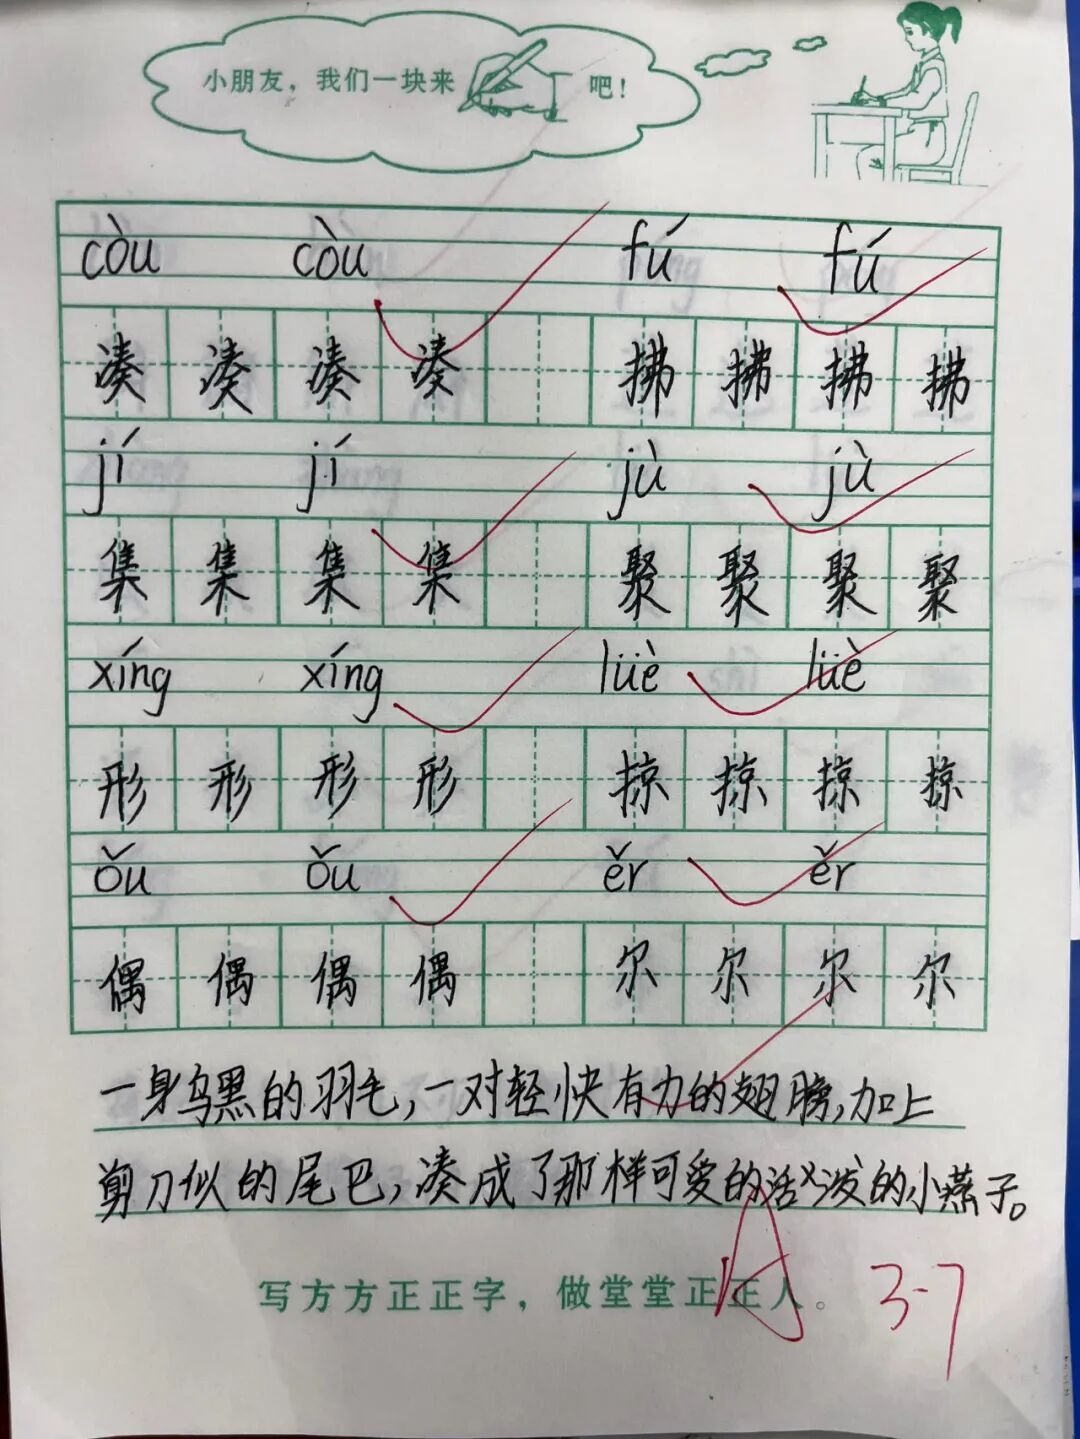 小朋友，我们一块来 吧！
còu còu fú fú
凑 凑 凑 凑 拂 拂 拂 拂
jí jí jù jù
集 集 集 集 聚 聚 聚 聚
xíng xíng lüè lüè
形 形 形 形 掠 掠 掠 掠
ǒu ǒu ěr ěr
偶 偶 偶 偶 尔 尔 尔 尔
一身乌黑的羽毛，一对轻快有力的翅膀，加上
剪刀似的尾巴，凑成了那样可爱的活泼的小燕子。
写方方正正字，做堂堂正正人。
A 3-7